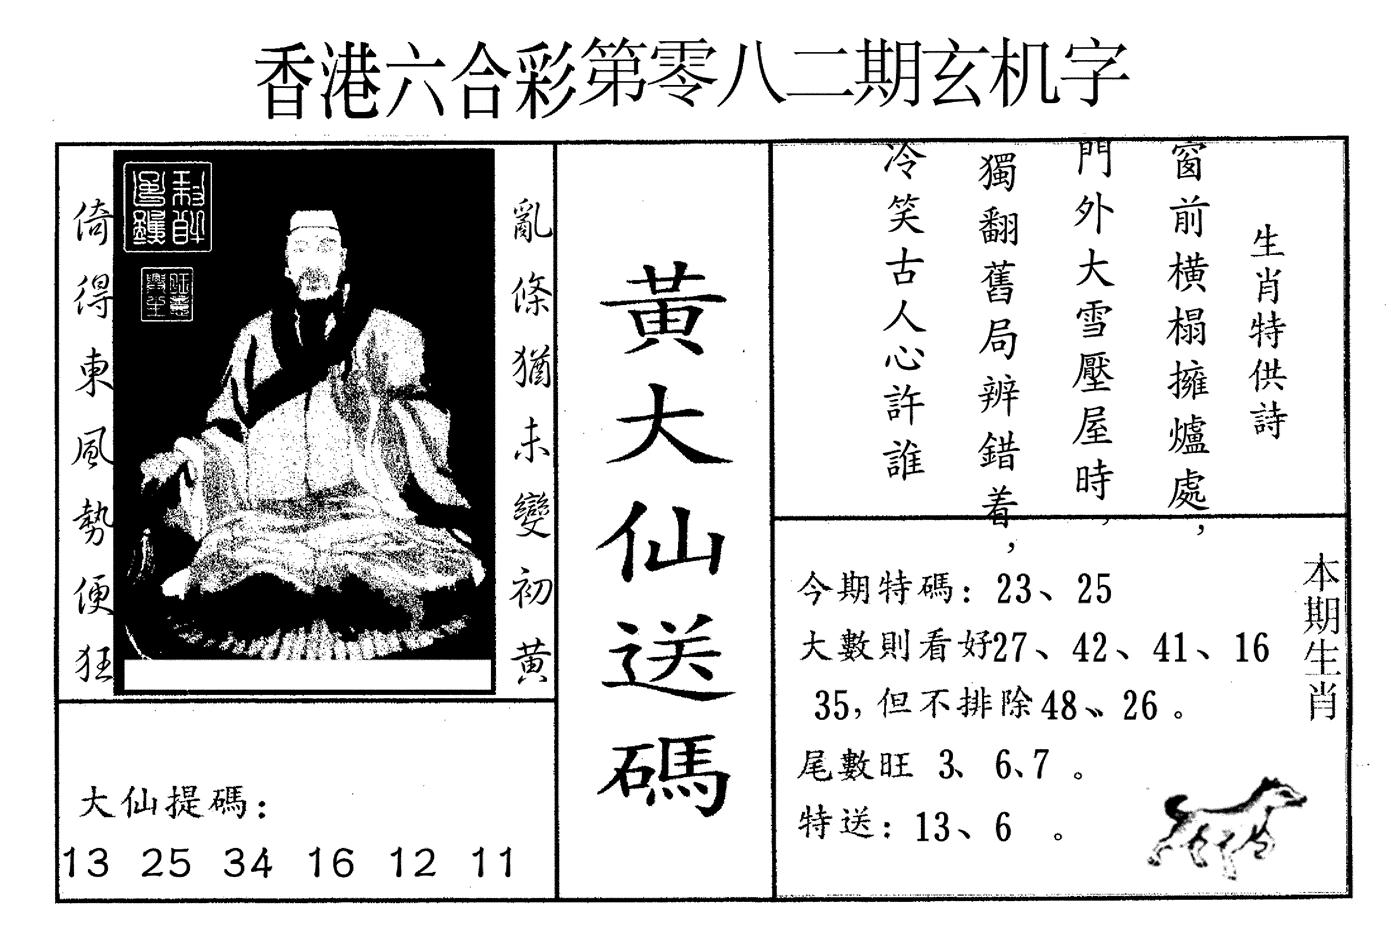 香港六合彩第零八二期玄机字
亂條猶未變初黃
倚得東風勢便狂
大仙提碼：
13 25 34 16 12 11
黃大仙送碼
生肖特供詩
窗前橫榻擁爐處，
門外大雪壓屋時，
獨翻舊局辨錯着，
冷笑古人心許誰
本期生肖
今期特碼：23、25
大數則看好27、42、41、16
35，但不排除48、26。
尾數旺 3、6、7。
特送：13、6。